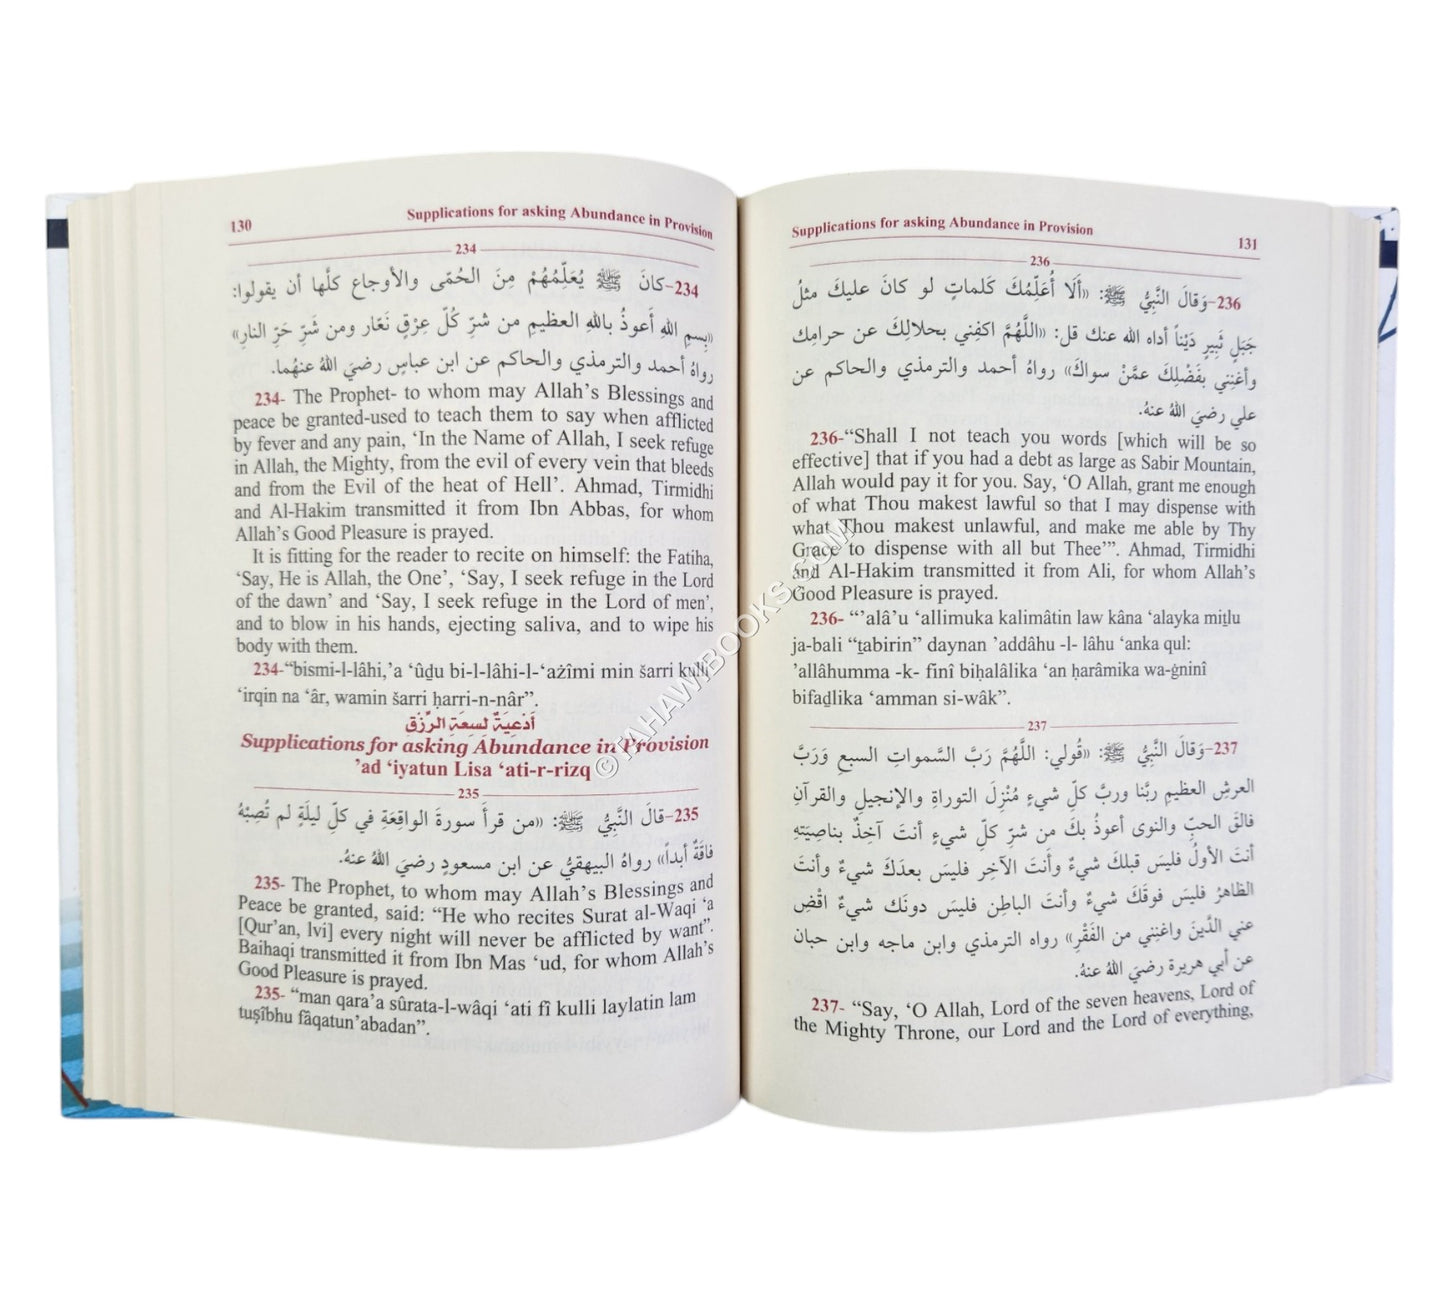 130 Supplications for asking Abundance in Provision
234
234-كانَ ﷺ يُعَلِّمُهُمْ مِنَ الحُمّى والأوجاع كلَّها أن يقولوا:
«بِسمِ اللهِ أَعوذُ باللهِ العظيمِ من شرِّ كُلِّ عِرْقٍ نَعّار ومن شَرِّ حَرِّ النارِ»
رواهُ أحمد والترمذي والحاكم عن ابن عباسٍ رضيَ اللهُ عنهُما.
234- The Prophet- to whom may Allah’s Blessings and
peace be granted-used to teach them to say when afflicted
by fever and any pain, ‘In the Name of Allah, I seek refuge
in Allah, the Mighty, from the evil of every vein that bleeds
and from the Evil of the heat of Hell’. Ahmad, Tirmidhi
and Al-Hakim transmitted it from Ibn Abbas, for whom
Allah’s Good Pleasure is prayed.
It is fitting for the reader to recite on himself: the Fatiha,
‘Say, He is Allah, the One’, ‘Say, I seek refuge in the Lord
of the dawn’ and ‘Say, I seek refuge in the Lord of men’,
and to blow in his hands, ejecting saliva, and to wipe his
body with them.
234-“bismi-l-lâhi,’a ‘ûḍu bi-l-lâhi-l-‘ażîmi min šarri kulli
‘irqin na ‘âr, wamin šarri ḥarri-n-nâr”.
أَدْعِيَةٌ لِسِعَةِ الرِّزْقِ
Supplications for asking Abundance in Provision
’ad ‘iyatun Lisa ‘ati-r-rizq
235
235-قالَ النَّبِيُّ ﷺ: «من قرأَ سورةَ الواقِعَةِ في كلِّ ليلَةٍ لم تُصِبْهُ
فاقَةٌ أبداً» رواهُ البيهقيُّ عن ابن مسعودٍ رضيَ اللهُ عنهُ.
235- The Prophet, to whom may Allah’s Blessings and
Peace be granted, said: “He who recites Surat al-Waqi ‘a
[Qur’an, lvi] every night will never be afflicted by want”.
Baihaqi transmitted it from Ibn Mas ‘ud, for whom Allah’s
Good Pleasure is prayed.
235- “man qara’a sûrata-l-wâqi ‘ati fî kulli laylatin lam
tuṣîbhu fâqatun’abadan”.
Supplications for asking Abundance in Provision 131
236
236-وَقالَ النَّبِيُّ ﷺ: «أَلَا أُعَلِّمُكَ كَلماتٍ لو كانَ عليكَ مثلُ
جَبَلِ ثَبِيرٍ دَيْناً أداه الله عنك قل: «اللَّهُمَّ اكفِني بحلالِكَ عن حرامِك
وأغنِني بفَضْلِكَ عمَّنْ سواكَ» رواهُ أحمد والترمذي والحاكم عن
علي رضيَ اللهُ عنهُ.
236-“Shall I not teach you words [which will be so
effective] that if you had a debt as large as Sabir Mountain,
Allah would pay it for you. Say, ‘O Allah, grant me enough
of what Thou makest lawful so that I may dispense with
what Thou makest unlawful, and make me able by Thy
Grace to dispense with all but Thee’”. Ahmad, Tirmidhi
and Al-Hakim transmitted it from Ali, for whom Allah’s
Good Pleasure is prayed.
236- “’alâ’u ‘allimuka kalimâtin law kâna ‘alayka miṯlu
ja-bali “ṯabirin” daynan ’addâhu -l- lâhu ‘anka qul:
’allâhumma -k- finî biḥalâlika ‘an ḥarâmika wa-ġninî
bifaḍlika ‘amman si-wâk”.
237
237-وَقالَ النَّبِيُّ ﷺ: «قُولي: اللَّهُمَّ رَبَّ السَّمواتِ السبعِ وَرَبَّ
العرشِ العظيمِ ربَّنا وربَّ كلِّ شيءٍ مُنْزِلَ التوراةِ والإنجيلِ والقرآنِ
فالقَ الحبِّ والنوى أعوذُ بكَ من شرِّ كلِّ شيءٍ أنتَ آخِذٌ بناصِيَتِهِ
أنتَ الأولُ فليسَ قبلكَ شيءٌ وأَنتَ الآخِرِ فليسَ بعدَكَ شيءٌ وأنتَ
الظاهرُ فليسَ فوقَكَ شيءٌ وأنتَ الباطِن فليسَ دونَك شيءٌ اقْضِ
عني الدَّينَ واغنِني من الفَقْرِ» رواه الترمذي وابن ماجه وابن حبان
عن أبي هريرة رضيَ اللهُ عنهُ.
237- “Say, ‘O Allah, Lord of the seven heavens, Lord of
the Mighty Throne, our Lord and the Lord of everything,
© TAHAWIBOOKS.COM